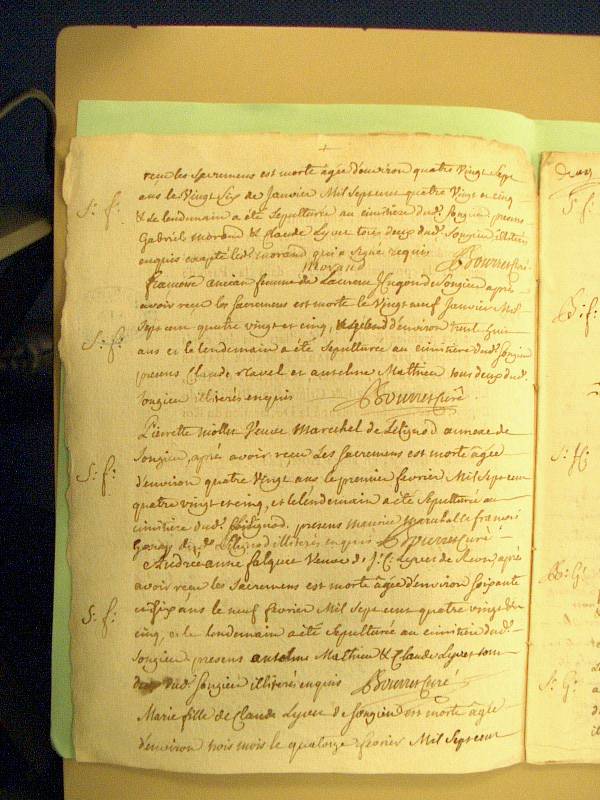 reçu les Sacremens est morte âgée d'environ quatre vingt Sept
ans le Vingt Six de Janvier Mil Sept cent quatre Vingt et cinq
S: f:
& Le lendemain a été Sepulturée au cimitière dud: Songieu presens
Gabriel morand & Claude Lyvet tous deux dud: Songieu illiteres
enquis excepté led: morand qui a Signé requis Bourret Curé
morand
francoise ancian femme de Laurent Songieu après
avoir reçu les Sacremens est morte le Vingt neuf Janvier Mil
Sept cent quatre vingt et cinq, âgée d'environ trent huit
S: f:
ans et le lendemain a été Sepulturée au cimitière dud: Songieu
presens Claude Ravel et antelme Mathieu tous deux dud:
Songieu illiterés enquis Bourret Curé
Pierrette mollet Veuve Marechel de annexe de
Songieu, après avoir reçu Les Sacremens est morte âgée
S: f:
d'environ quatre Vingt ans le premier fevrier Mil Sept cent
quatre vingt et cinq, et le lendemain a été Sepulturée au
cimitière dud: presens Maurice Marechal & francois
dud: illiterés enquis Bourret Curé
Andrée anne falquet Veuve de J: C: Lyvet de après
avoir reçu les Sacremens est morte âgée d'environ Soixante
S: f:
ans le neuf fevrier Mil Sept cent quatre vingt et
cinq, et le lendemain a été Sepulturée au cimitière dud:
Songieu presens antelme Mathieu & Claude Lyvet tous
deux dud: Songieu illiterés enquis Bourret Curé
Marie fille de Claude Lyvet de Songieu est morte âgée
d'environ trois mois le quatorze fevrier Mil Sept cent